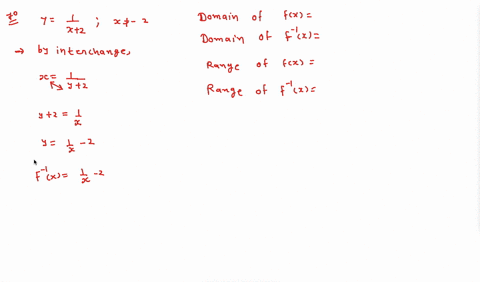 y = 1/(x+2) ; x ≠ -2
→ by interchange,
x = 1/(y+2)
y+2 = 1/x
y = 1/x - 2
F⁻¹(x) = 1/x - 2
Domain of f(x) =
Domain of F⁻¹(x) =
Range of f(x) =
Range of F⁻¹(x) =